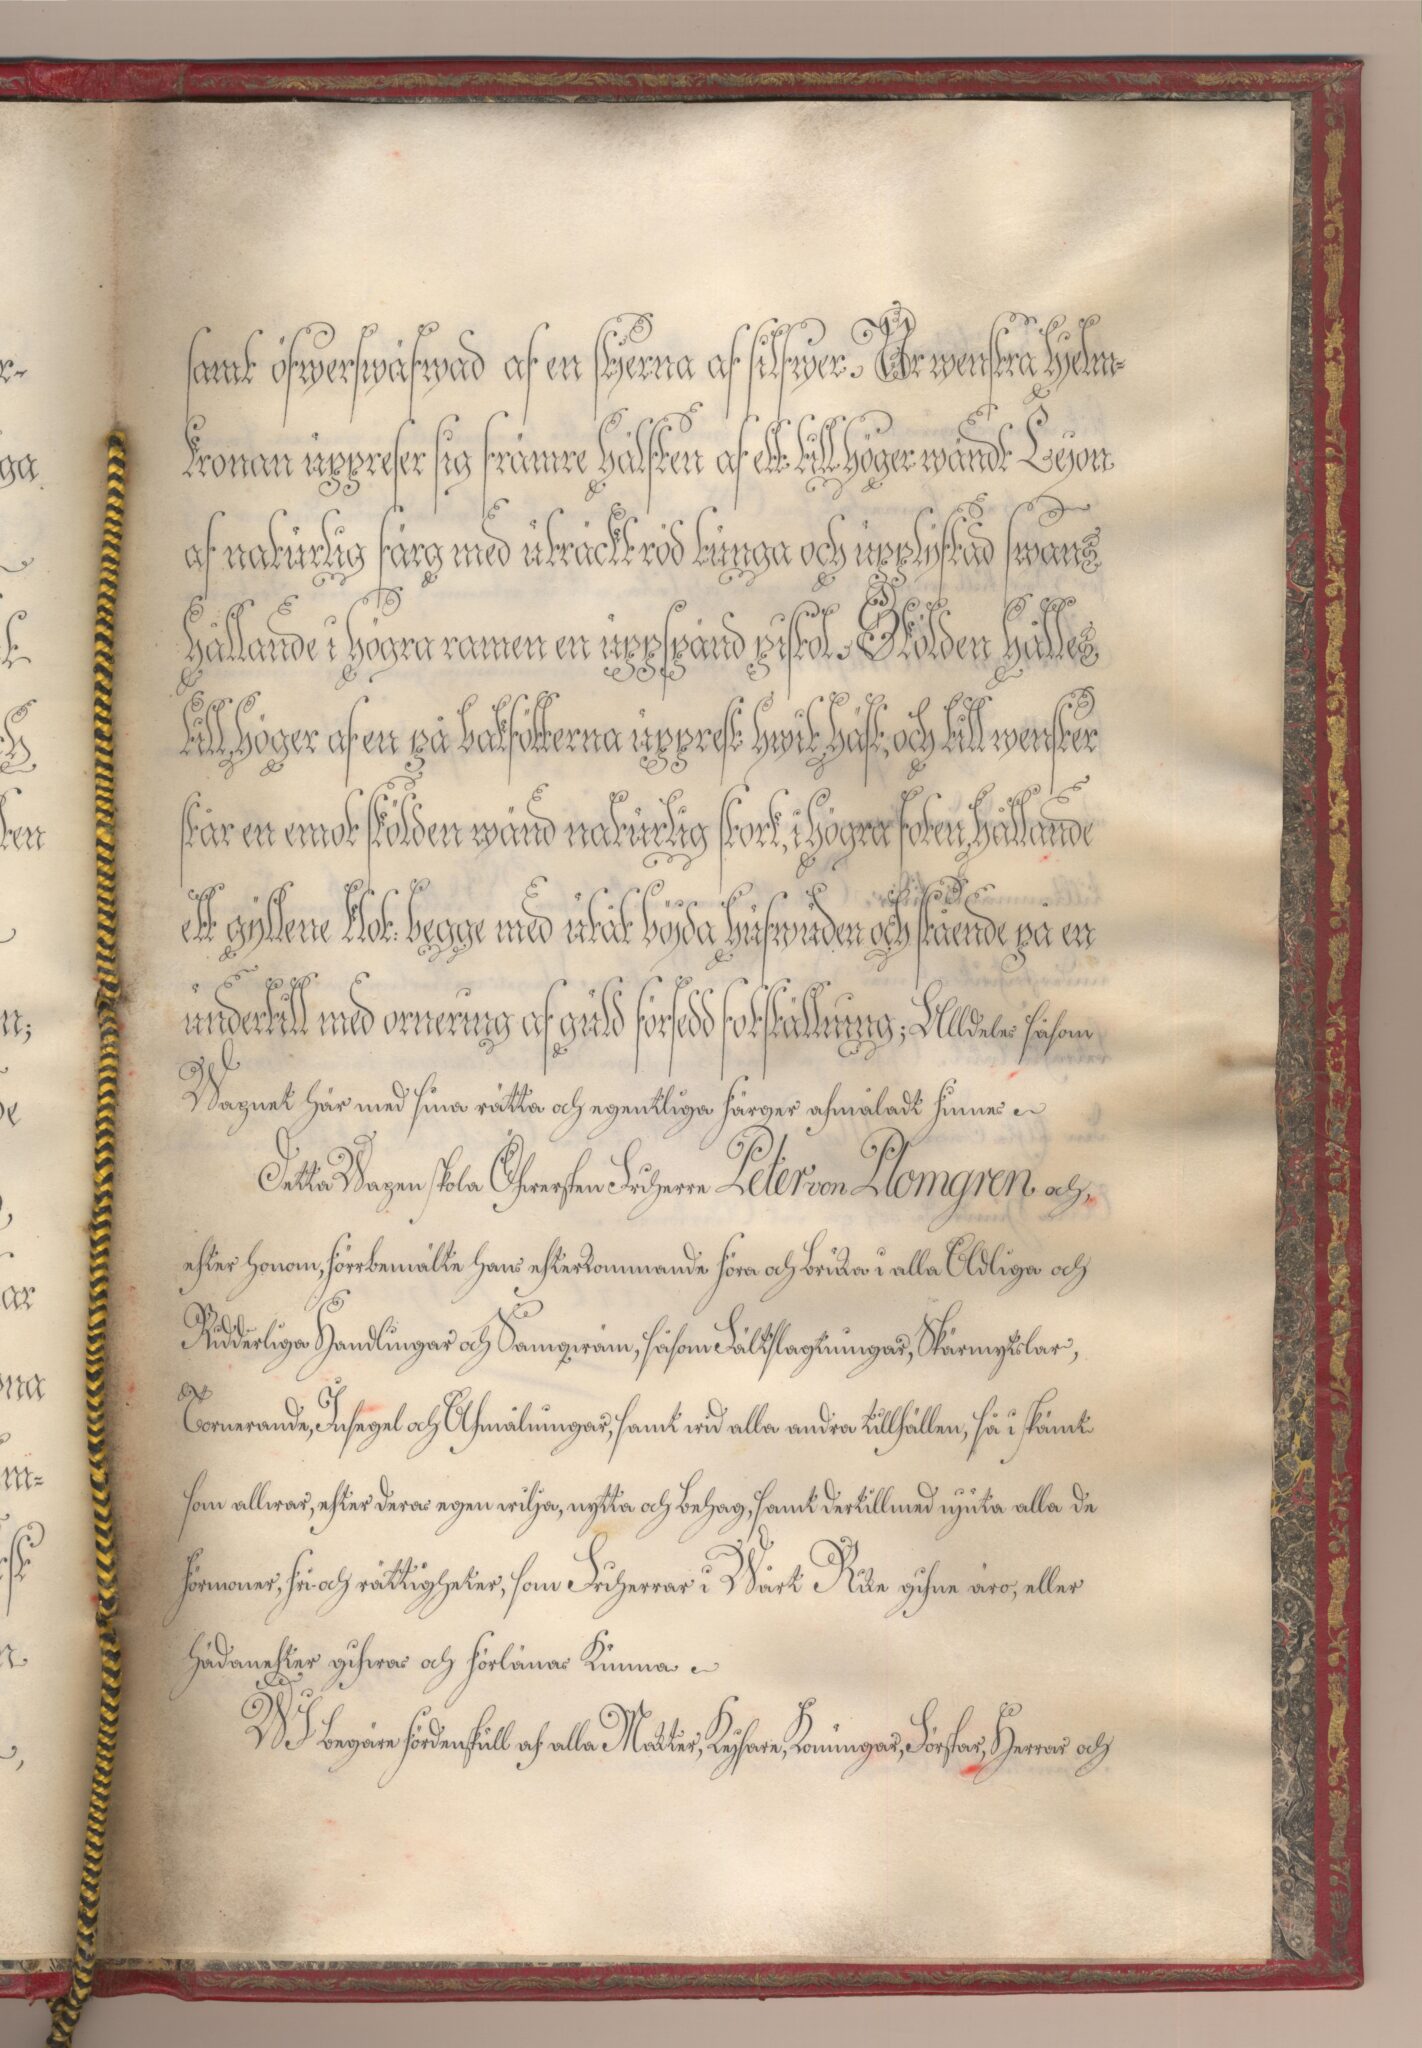 samt öfwerswäfwad af en stjerna af silfwer. Ur wenstra hjelm-
kronan uppreser sig främre hälften af ett till höger wändt Leyon
af naturlig färg med uträckt röd tunga och upplyftad swans,
hållande i högra ramen en uppspänd pistol. Skölden hålles
till höger af en på bakfötterna upprest hwit häst, och till wenster
står en emot skölden wänd naturlig stork, i högra foten hållande
ett gyllene klot: begge med utåt böjda hufwuden och stående på en
undertill med ornering af guld försedd fotställning; Alldeles såsom
Wapnet här med sina rätta och egentliga färger afmåladt finnes
Detta Wapen skola Öfwersten Friherre Peter von Plomgren och,
efter honom, förrbemälte hans efterkommande föra och bruka i alla Adliga och
Ridderliga Handlingar och Samqwäm, såsom Fältslagtningar, Skärmytslar,
Tornerande, Insegel och Afmålningar, samt wid alla andra tillfällen, så i skämt
som allwar, efter deras egen wilja, nytta och behag, samt dertillmed njuta alla de
förmoner, fri- och rättigheter, som Friherrar i Wårt Rike gifne äro, eller
hädanefter gifwas och förlänas kunna
WJ begäre fördenskull af alla Magter, Keysare, Konungar, Förstar, Herrar och